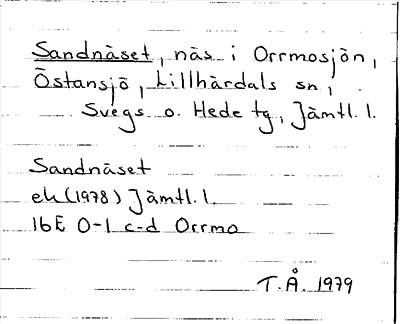 Sandnäset, näs i Orrmosjön,
Östansjö, Lillhärdals sn,
Svegs o. Hede tg, Jämtl. l.
Sandnäset
ek (1978) Jämtl. l.
16E 0-1 c-d Orrmo
T.Å. 1979